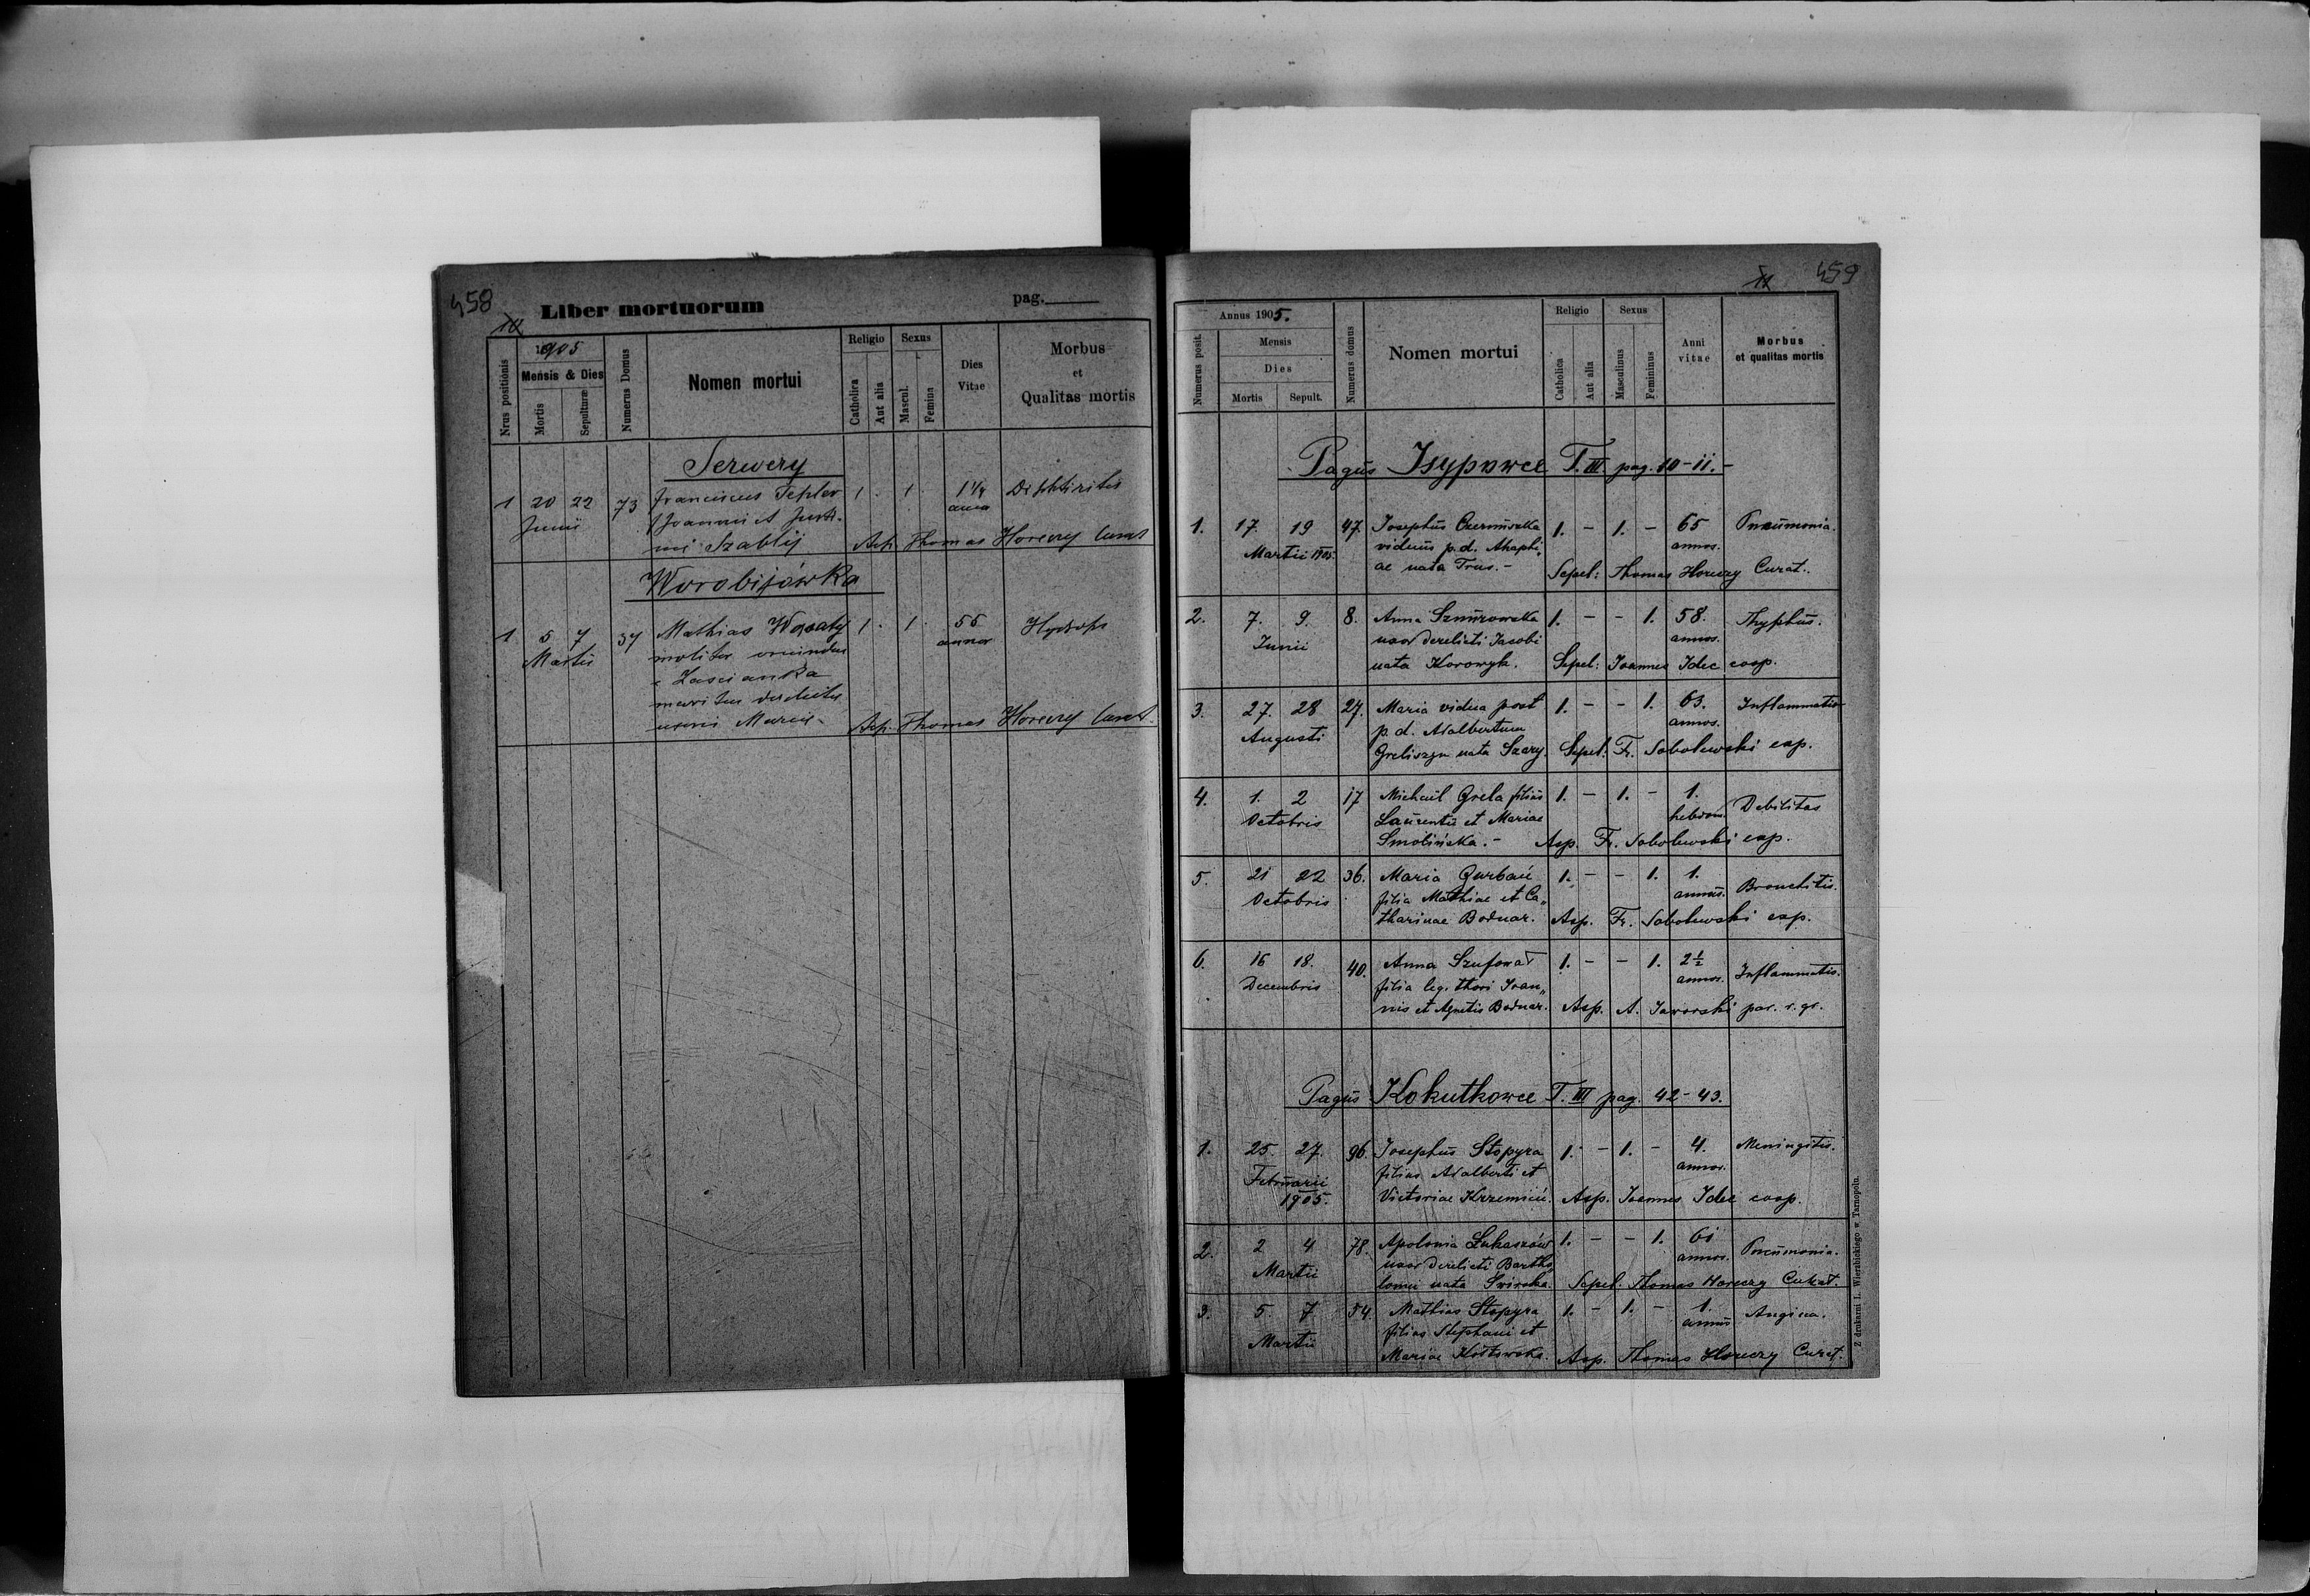 458
10
Liber mortuorum
pag.
Nrus positionis
1905
Mensis & Dies
Mortis
Sepulturæ
Numerus Domus
Nomen mortui
Religio
Catholica
Aut alia
Sexus
Mascul.
Femina
Dies
Vitae
Morbus
et
Qualitas mortis
Serwery
1 20 22 73 Franciscus Tepler 1 . 1 . 1 1/4 Diphtiritis
Junii Joannis et Justi-
ni Szablij Asp. Thomas Horeczy Curat
Worobijówka
1. 5 7 37 Mathias Wąsaty 1 . 1 . 56 Hydrops
Martii molitor oriundus annor
e Zascianka
maritus derelictus
uxoris Mariae Asp. Thomas Horeczy Curat.
11
459
Annus 1905.
Numerus posit.
Mensis
Dies
Mortis
Sepult.
Numerus domus
Nomen mortui
Religio
Catholica
Aut alia
Sexus
Masculinus
Femininus
Anni
vitae
Morbus
et qualitas mortis
Pagus Isypowce T. III. pag. 10-11.-
1. 17. 19 47. Josephus 1. - 1. - 65 Pneumonia.
Martii 1905. viduus p.d. Ahaphi„ annos.
ae nata Trus.- Sepel: Thomas Horeczy Curat.
2. 7. 9. 8. Anna Szmirowska 1. - - 1. 58. Thyphus.
Junii uxor derelicti Jacobi annos.
nata Korowyk. Sepel: Joannes Idec coop.
3. 27. 28 27. Maria vidua post 1. - - 1. 63. Inflammatio
Augusti p.d. Adalbertum annos.
Greliszyn nata Szary. Sepel. Fr. Sobolewski exp.
4. 1. 2 17 Michael Grela filius 1. - 1. - 1. Debilitas
Octobris Laurentii et Mariae hebdom.
Smolińska.- Asp. Fr. Sobolewski exp.
5. 21 22 36. Maria Gurbań 1. - - 1. 1. Bronchitis.
Octobris filia Mathiae et Ca„ annus.
tharinae Bodnar. Asp. Fr. Sobolewski exp.
6. 16 18. 40. Anna Szufowat 1. - - 1. 2 1/2 Inflammatio.
Decembris filia leg. thori Joan„ annos.
nis et Agnetis Bodnar. Asp. A. Jaworski par. r. gr.
Pagus Kokutkowce T. III pag. 42-43.
1. 25. 27. 96. Josephus Stopyra 1. - 1. - 4. Meningitis.
Februarii filius Adalberti et annos.
1905. Victoriae Krzemień. Asp. Joannes Idec coop.
2. 2 4 78. Apolonia Łukaszów 1. - - 1. 61 Pneumonia.
Martii uxor derelicti Bartho„ annos.
lomei nata Świrska. Sepel. Thomas Horeczy Curat.
3. 5. 7. 54. Mathias Stopyra 1. - 1. - 1. Angina.
Martii filius Stephani et annus
Mariae Kozłowska. Asp. Thomas Horeczy Curat.
Z drukarni L. Wierzbickiego w Tarnopolu.